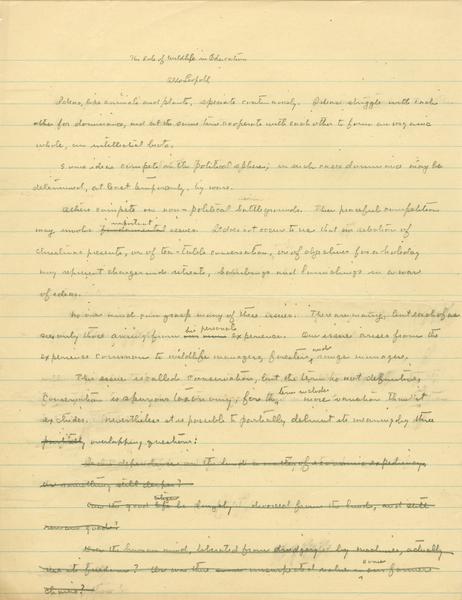 The Role of Wildlife in Education
Aldo Leopold
Ideas, like animals and plants, speciate continuously. Ideas struggle with each
other for dominance, and at the same time cooperate with each other to form an organic
whole, an intellectual biota.
Some ideas compete in the political sphere; in such cases dominance may be
determined, at least temporarily, by war.
Others compete on non-political battlegrounds. Their peaceful competition
important
may involve fundamental issues. It does not occur to us that our selection of
Christmas presents, or of tea-table conversation, or of objectives for a holiday
may represent charges and retreats, in a war
of ideas.
No one mind can grasp many of these issues. There are many, but each of us
his personal
sees only those arising from experience. Our issue arises from the
experience common to wildlife managers, foresters, and range managers.
This issue is called conservation, but the term is not definitive.
term includes
Conservation is a for the more varied than it
excludes. Nevertheless it is possible to partially delimit its meaning by three
partially overlapping questions:
Is our dependence on the land a matter of economic expediency,
or something still deeper?
citizen
Can the good life be divorced from the land, and still
remain good?
Has the human mind, liberated from drudgery by machines, actually
use its freedom? Or was there some unsuspected value in our former
chains?